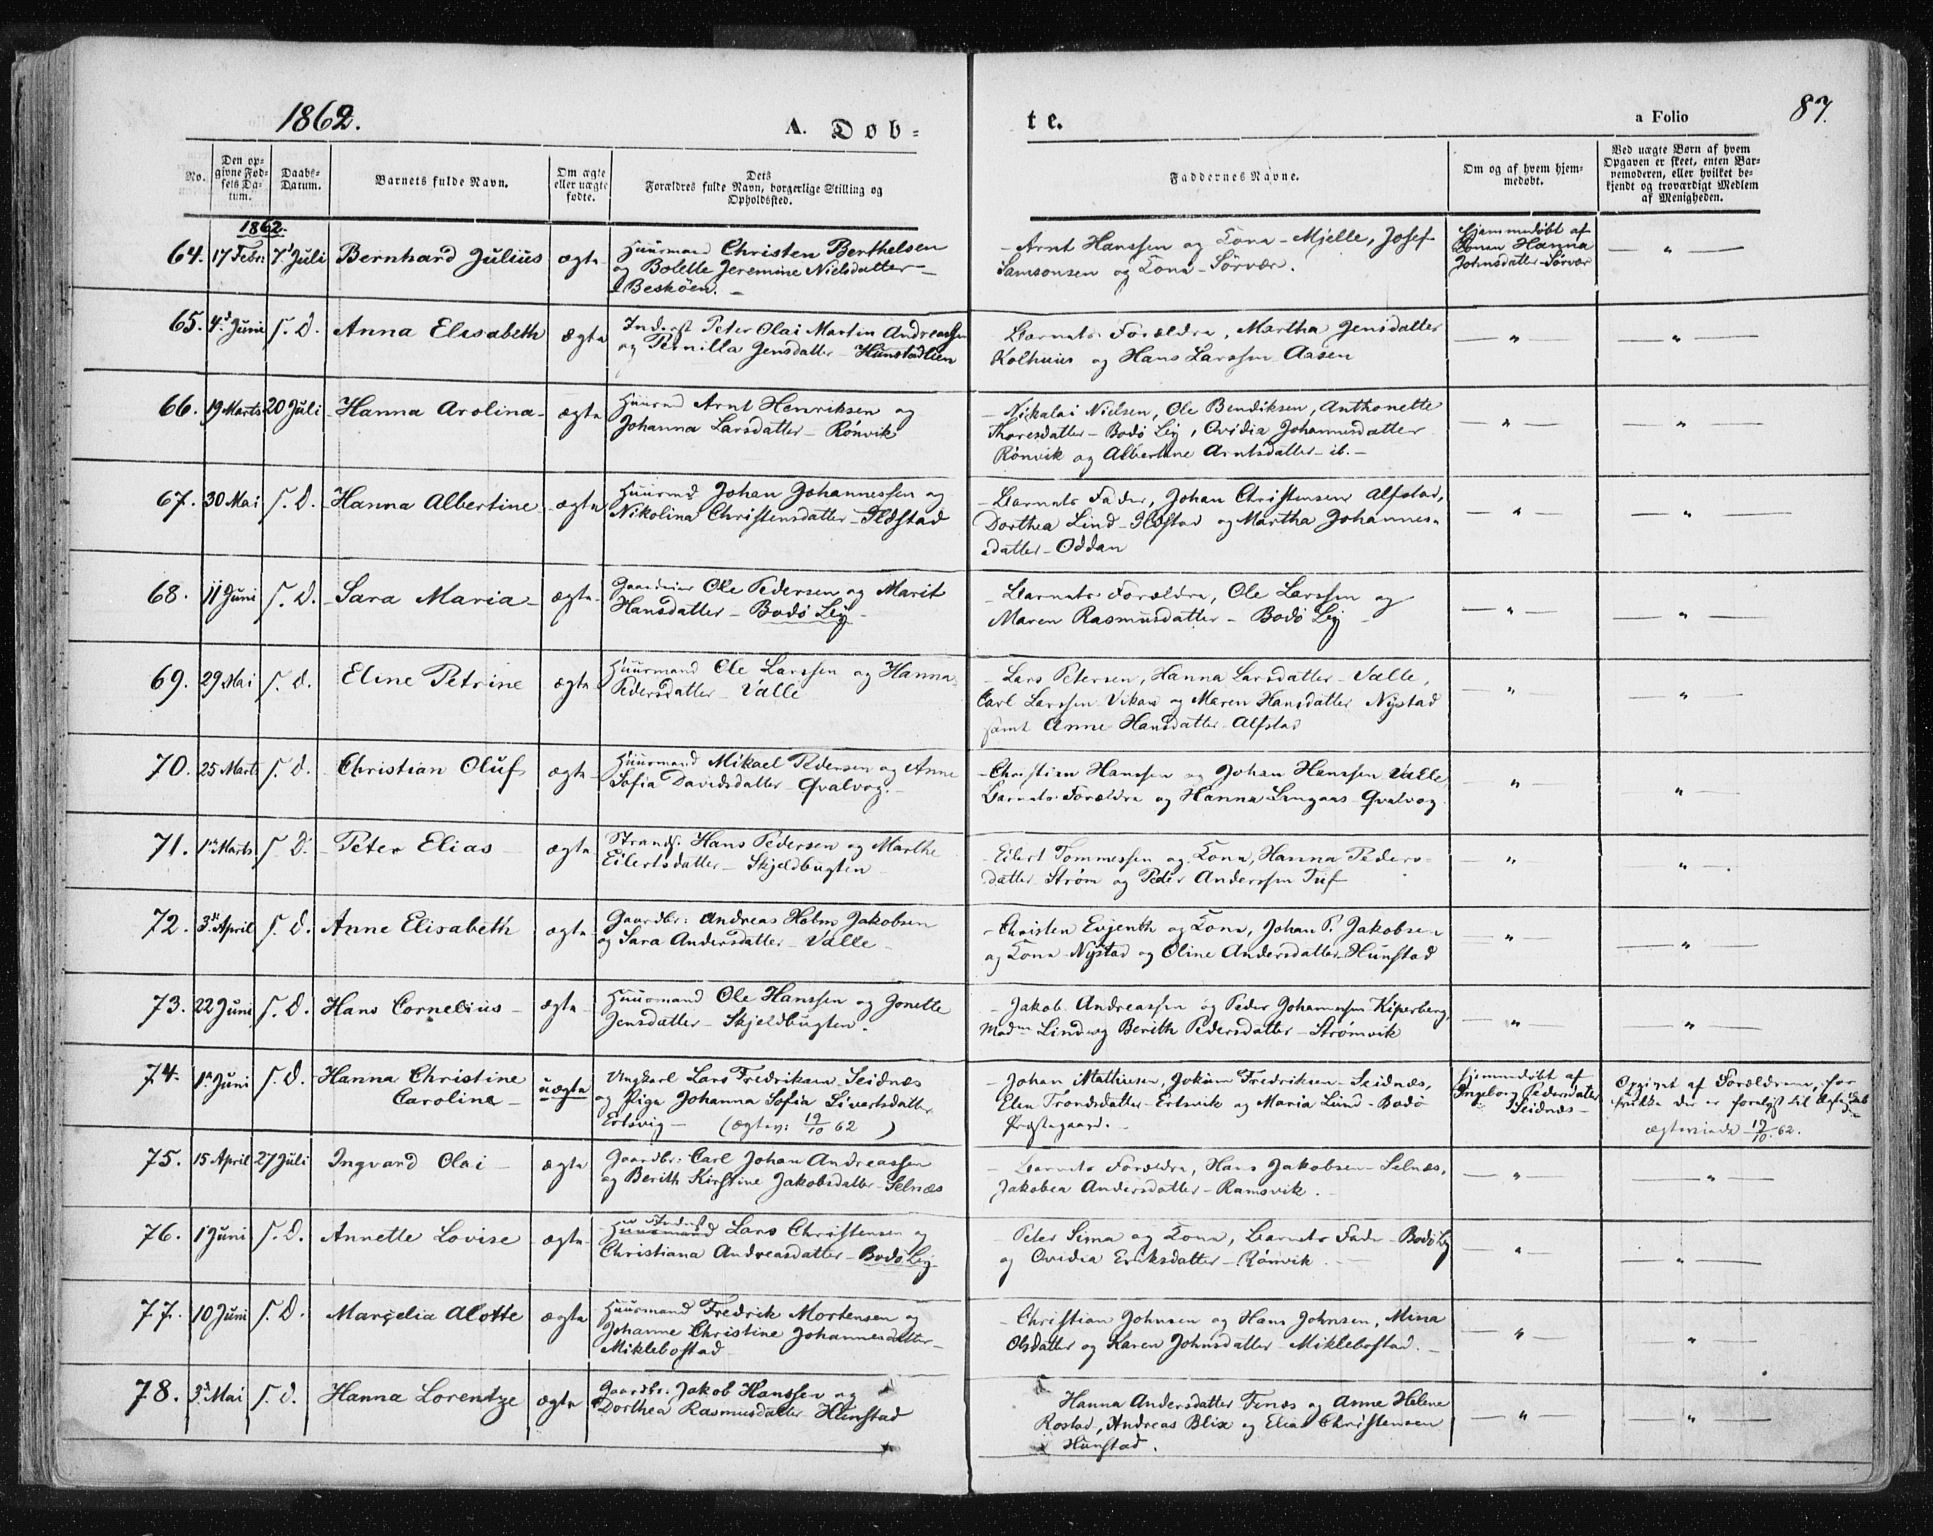 1862.
A. Døb-
te.
a Folio
87.
No.
Den op-
givne Fød-
sels Da-
tum.
Daabs-
Datum.
Barnets fulde Navn.
Om ægte
eller uægte
fødte.
Dets
Forældres fulde Navn, borgerlige Stilling og
Opholdssted.
Faddernes Navne.
Om og af hvem hjem-
medøbt.
Ved uægte Børn af hvem
Opgaven er skeet, enten Bar-
nemoderen, eller hvilket be-
kjendt og troværdigt Medlem
af Menigheden.
1862.
64. 17 Febr. 7d Juli Bernhard Julius ægte
Huusmand Christen Berthelsen
og Bolette Jeremine Nielsdatter
Beskøen.
Arnt Hanssen og Kona - Mjelle, Josef
Samsonsen og Kona - Sørvær.
Hjemmedøbt af
Konen Hanna
Johnsdatter Sørvær
65. 4d Juni S. D. Anna Elisabeth ægte
Inderst Peter Olai Martin Andreassen
og Pernilla Jensdatter - Hunstadlien
Barnets Forældre, Martha Jensdatter
Kolhuus og Hans Larssen Aasen
66. 19 Marts 20 Juli Hanna Arolina ægte
Huusmd Arnt Henriksen og
Johanna Larsdatter - Rønvik
Nikolai Nielsen, Ole Bendiksen, Anthonette
Thoresdatter - Bodø Lej, Ovidia Johannesdatter
Rønvik og Albertine Arntsdatter - ib.
67. 30 Mai S. D. Hanna Albertine ægte
Huusmd Johan Johannessen og
Nikolina Christensdatter - Ildstad
Barnets Fader, Johan Christensen Alfstad,
Dorthea Lind - Ildstad og Martha Johannes-
datter - Oddan
68. 11 Juni S. D. Sara Maria ægte
Gaardeier Ole Pedersen og Marit
Hansdatter - Bodø Lej
Barnets Forældre, Ole Larssen og
Maren Rasmusdatter - Bodø Lej
69. 29 Mai S. D. Eline Petrine ægte
Huusmand Ole Larssen og Hanna
Pedersdatter - Valle
Lars Petersen, Hanna Larsdatter - Valle,
Carl Larssen Vikan og Maren Hansdatter Nystad
samt Anne Hansdatter - Alfstad
70. 25 Marts S. D. Christian Oluf ægte
Huusmand Mikael Pedersen og Anne
Sofia Davidsdatter - Qvalvog.
Christian Hanssen og Johan Hanssen Valle,
Barnets Forældre og Hanna Langaas Qvalvog
71. 1n Marts S. D. Peter Elias ægte
Strands. Hans Pedersen og Marthe
Eilertsdatter - Skjeldbugten
Eilert Tommessen og Kona, Hanna Peders-
datter Strøm og Peder Anderssen Tuf
72. 3n April S. D. Anne Elisabeth ægte
Gaardbr: Andreas Holm Jakobsen
og Sara Andersdatter - Valle
Christen Evjenth og Kona, Johan P. Jakobsen
og Kona - Nystad og Oline Andersdatter Hunstad
73. 22 Juni S. D. Hans Cornelius ægte
Huusmand Ole Hanssen og Jonette
Jensdatter - Skjeldbugten.
Jakob Andreassen og Peder Johannessen Kiperberg,
Madm Lind og Berith Pedersdatter - Strømvik
74. 1n Juni S. D. Hanna Christine
Caroline uægte
Ungkarl Lars Fredriksen Seidnæs
og Pige Johanna Sofia Sivertsdatter
Ertsvig - (ægtev: 19/10 62)
Johan Mathiesen, Jokum Fredriksen - Seidnæs,
Elen Trondsdatter - Ertsvik og Maria Lund - Bodø
Præstegaard.
Hjemmedøbt af
Ingeborg Pedersdatter
Seidnæs
Opgivet af Forældrene, for
hvilke der er forelyst til Ægteskab
ægteviede 19/10. 62.
75. 15 April 27 Juli Ingvard Olai ægte
Gaardbr: Carl Johan Andreassen
og Berith Kirstine Jakobsdatter - Selnæs
Barnets Forældre, Hans Jakobsen - Selnæs,
Jakobea Andersdatter - Ramsvik.
76. 1 Juni S. D. Annette Lovise ægte
Inderst
Huusmand Lars Christensen og
Christiana Andreasdatter - Bodø Lej
Peter Sima og Kona, Barnets Fader - Bodø Lej
og Ovidia Eriksdatter - Rønvik.
77. 10 Juni S. D. Marcelia Alotte ægte
Huusmand Fredrik Mortensen og
Johanne Christine Johannesdatter
Miklebostad
Christian Johnsen og Hans Johnsen, Mina
Olsdatter og Karen Johnsdatter Miklebostad.
78. 3d Mai S. D. Hanna Lorentze ægte
Gaardbr: Jakob Hanssen og
Dorthea Rasmusdatter Hunstad
Hanna Andersdatter Fenæs og Anne Helene
Rostad, Andreas Blix og Elias Christensen
Hunstad.